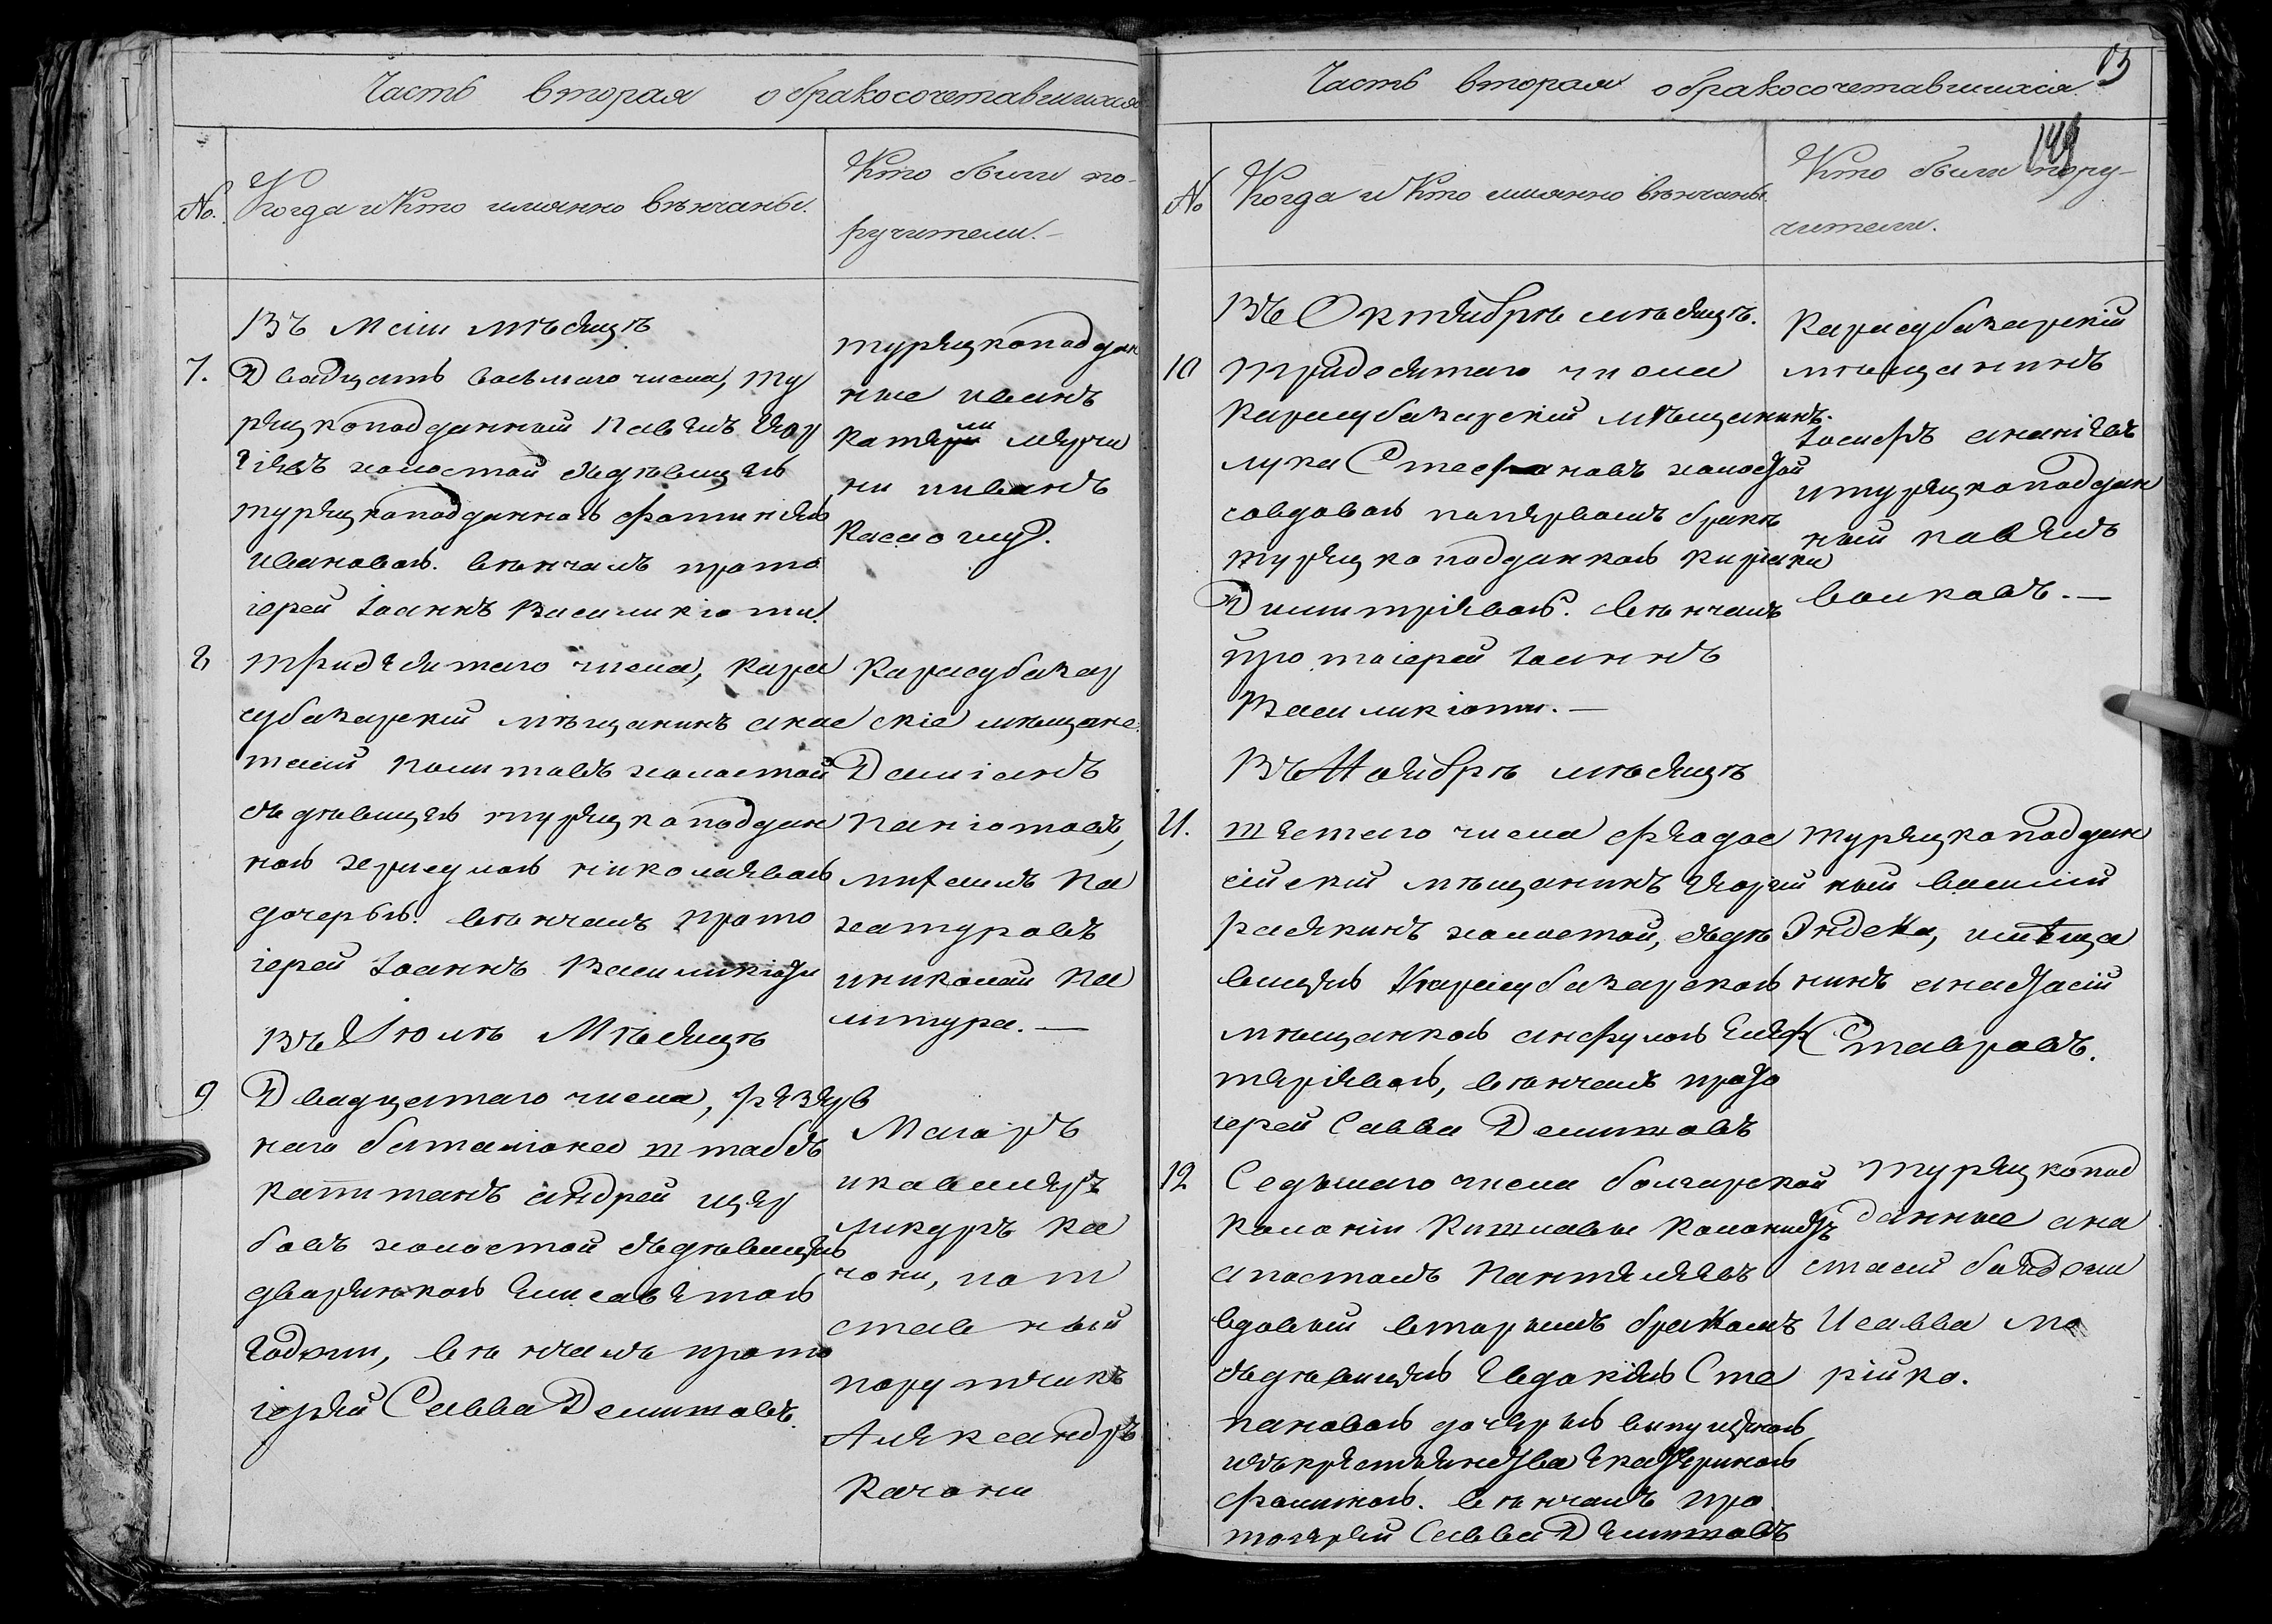 Часть вторая о бракосочетавшихся
№.
Когда и Кто имянно вѣнчаны.
Кто были по-
ручители.-
Въ Маіи мѣсяцѣ
7.
Двадцать восьмаго числа, ту
рецкоподданный Павелъ Геор
гіевъ холостой съ дѣвицею
турецкоподданною фотинею
Ивановою. вѣнчалъ прото
іерей Іоаннъ Василикіоти.
турецкоподдан
ные иванъ
ни и иванъ
8
тридесятаго числа, кара
субазарскій мѣщанинъ анас
тасій Политовъ холостой
съ дѣвицею турецкоподдан
ною херисулою николаевою
дочерью. вѣнчалъ прото
іерей Іоаннъ Василикіоти
Карасубазар
скіе мѣщане
Даміанъ
Паніотовъ,
михаилъ Ка
хатуровъ
и николай Ка
литура.—
Въ Іюлѣ Мѣсяцѣ
9
Двадцатаго числа, резерв
наго баталіона штабсъ
капитанъ андрей щер
бовъ холостой съ дѣвицею
дворянкою Елисаветою
вѣнчалъ прото
іерей Савва Деминовъ.
Маіоръ
и кавалеръ
ликуръ Ка
чони, и от
ставный
порутчикъ
Александръ
Качони
Часть вторая о бракосочетавшихся
13
149
№
Когда и Кто имянно вѣнчаны
Кто были пору-
чители.
Въ Октябрѣ мѣсяцѣ.
10
тридесятаго числа
Карасубазарскій мѣщанинъ
лука Стефановъ холостой
со вдовою по первомъ бракѣ
турецкоподданною Киріаки
Димитріевою. вѣнчалъ
протоіерей Іоаннъ
Василикіоти.—
Карасубазарскій
мѣщанинъ
Іосифъ ананіевъ
и турецкоподдан
ный павелъ
волковъ.—
Въ Ноябрѣ мѣсяцѣ
11.
шестаго числа феодос
сійскій мѣщанинъ Георгій
холостой, съ дѣ
вицею Карасубазарскою
мѣщанкою анфулою Елеф
теріевою, вѣнчалъ прото
іерей Савва Деминовъ
турецкоподдан
ный василій
и мѣща
нинъ анастасій
Ставровъ.
12
Седьмаго числа болгарской
Колоніи Кишлавы Колонистъ
апостолъ Пантелеевъ
вдовый вторымъ бракомъ
съ дѣвицею Евдокіею Сте
пановою дочерью выпущеною
изъ крестьянства Екатериною
вѣнчалъ про
тоіерей Савва Деминовъ
Турецкопод
данные ана
стасій
И савва ма
рійко.